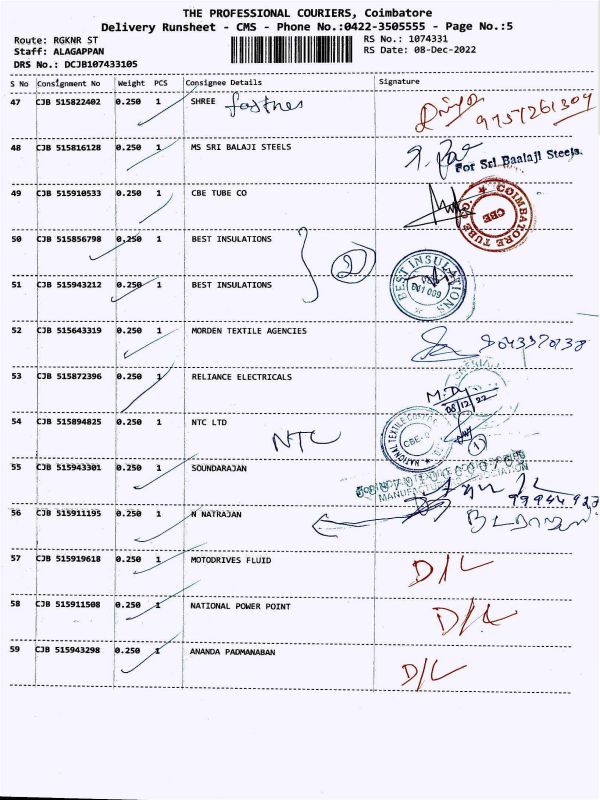 THE PROFESSIONAL COURIERS, Coimbatore
Delivery Runsheet - CMS - Phone No.:0422-3505555 - Page No.:5
Route: RGKNR ST
RS No.: 1074331
Staff: ALAGAPPAN
RS Date: 08-Dec-2022
DRS No.: DCJB107433105
S No Consignment No Weight PCS Consignee Details Signature
47 CJB 515822402 0.250 1 SHREE fastnes
9757261309
48 CJB 515816128 0.250 1 MS SRI BALAJI STEELS
For Sri Baalaji Steels.
49 CJB 515910533 0.250 1 CBE TUBE CO
COIMBATORE TUBE CO
CBE
50 CJB 515856798 0.250 1 BEST INSULATIONS
2
51 CJB 515943212 0.250 1 BEST INSULATIONS
BEST INSULATIONS
52 CJB 515643319 0.250 1 MORDEN TEXTILE AGENCIES
53 CJB 515872396 0.250 1 RELIANCE ELECTRICALS
08/12/22
54 CJB 515894825 0.250 1 NTC LTD
NTC
NATIONAL TEXTILE
CBE
1
55 CJB 515943301 0.250 1 SOUNDARAJAN
56 CJB 515911195 0.250 1 N NATRAJAN
57 CJB 515919618 0.250 1 MOTODRIVES FLUID D/L
58 CJB 515911508 0.250 1 NATIONAL POWER POINT D/L
59 CJB 515943298 0.250 1 ANANDA PADMANABAN D/L